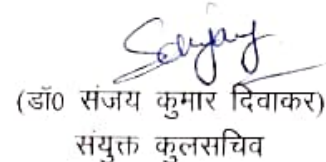 Sanjay
(डॉ0 संजय कुमार दिवाकर)
संयुक्त कुलसचिव